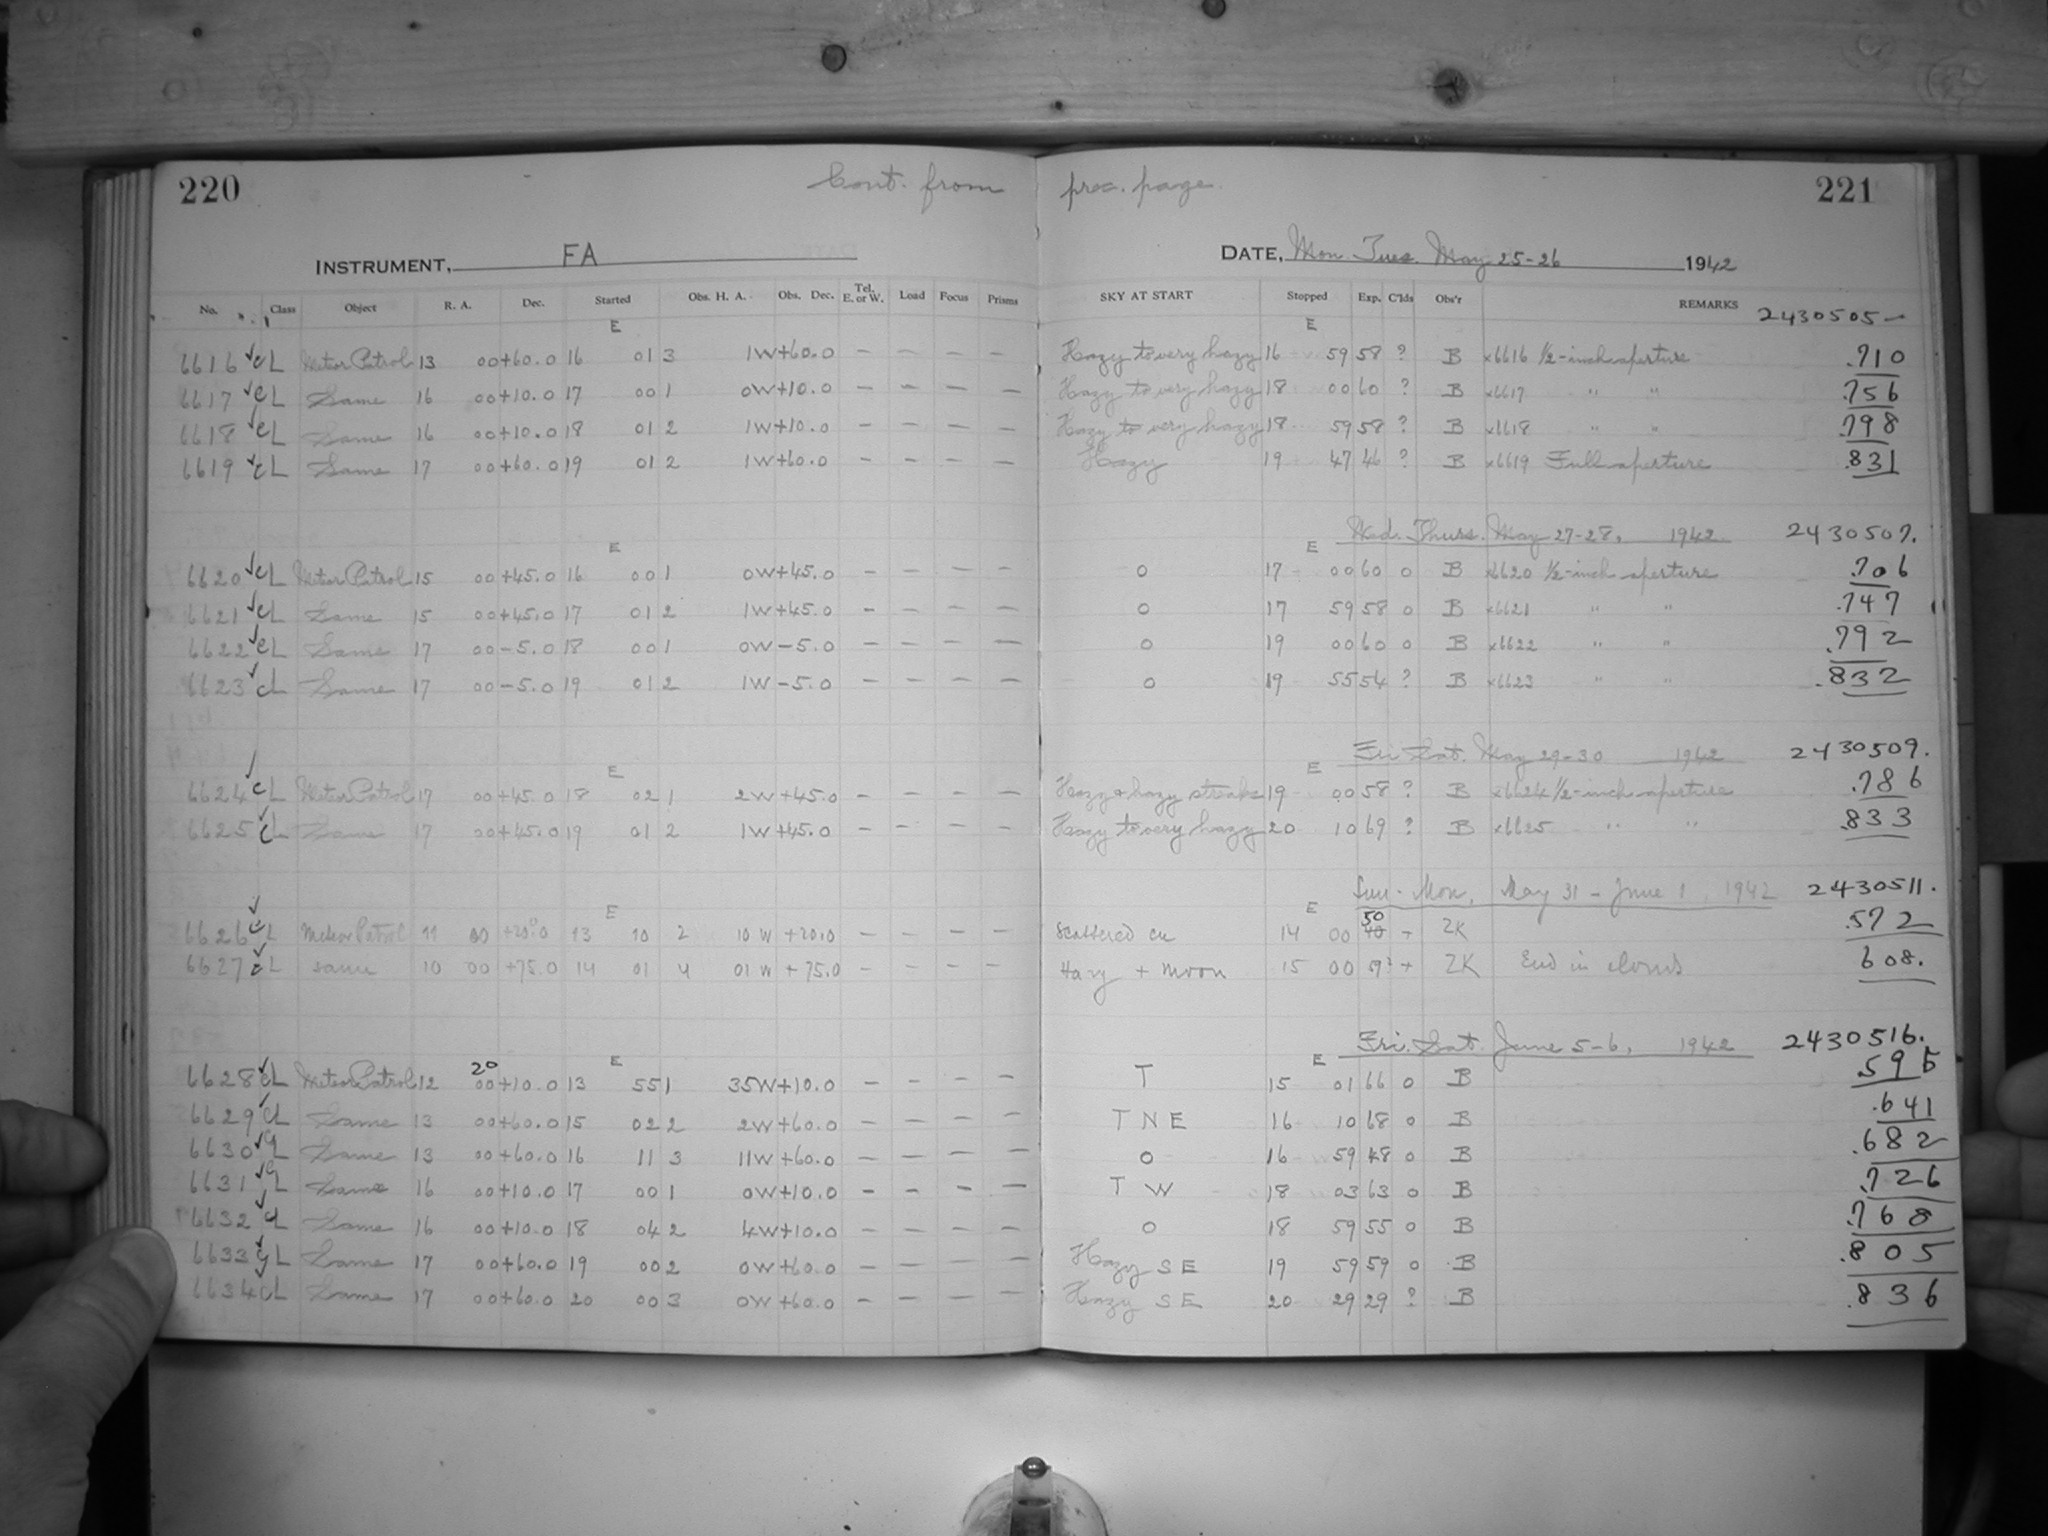 220 Cont. from prec. page. 221
INSTRUMENT, FA DATE, Mon. Tues. May 25-26 1942
No. Class Object R. A. Dec. Started Obs. H. A. Obs. Dec. Tel. E. or W. Load Focus Prisms SKY AT START Stopped Exp. C'lds Obs'r REMARKS 2430505
E E
6616 ✓ CL Meteor Patrol 13 00 +60.0 16 01 3 1W +60.0 — — — — Hazy to very hazy 16 59 58 ? B x6616 1/2-inch aperture .710
6617 ✓ CL Same 16 00 +10.0 17 00 1 0W +10.0 — — — — Hazy to very hazy 18 00 60 ? B x6617 " " .756
6618 ✓ CL Same 16 00 +10.0 18 01 2 1W +10.0 — — — — Hazy to very hazy 18 59 58 ? B x6618 " " .798
6619 ✓ CL Same 17 00 +60.0 19 01 2 1W +60.0 — — — — Hazy 19 47 46 ? B x6619 Full aperture .831
E E Wed. Thurs. May 27-28, 1942 2430507.
6620 ✓ CL Meteor Patrol 15 00 +45.0 16 00 1 0W +45.0 — — — — 0 17 00 60 0 B x6620 1/2-inch aperture .706
6621 ✓ CL Same 15 00 +45.0 17 01 2 1W +45.0 — — — — 0 17 59 58 0 B x6621 " " .747
6622 ✓ CL Same 17 00 -5.0 18 00 1 0W -5.0 — — — — 0 19 00 60 0 B x6622 " " .792
6623 ✓ CL Same 17 00 -5.0 19 01 2 1W -5.0 — — — — 0 19 55 54 ? B x6623 " " .832
E E Fri. Sat. May 29-30 1942 2430509.
6624 ✓ CL Meteor Patrol 17 00 +45.0 18 02 1 2W +45.0 — — — — Hazy + hazy streaks 19 00 58 ? B x6624 1/2-inch aperture .786
6625 ✓ CL Same 17 00 +45.0 19 01 2 1W +45.0 — — — — Hazy to very hazy 20 10 69 ? B x6625 " " .833
E E Sun - Mon, May 31 - June 1, 1942 2430511.
6626 ✓ CL Meteor Patrol 11 00 +20.0 13 10 2 10 W +20.0 — — — — Scattered cu 14 00 50 + ZK .572
6627 ✓ CL same 10 00 +75.0 14 01 4 01 W +75.0 — — — — Hazy + moon 15 00 59 + ZK End in clouds 608.
E E Fri. Sat. June 5-6, 1942 2430516.
6628 ✓ CL Meteor Patrol 12 20 00 +10.0 13 55 1 35W +10.0 — — — — T 15 01 66 0 B .595
6629 ✓ CL Same 13 00 +60.0 15 02 2 2W +60.0 — — — — T N E 16 10 68 0 B .641
6630 ✓ CL Same 13 00 +60.0 16 11 3 11W +60.0 — — — — 0 16 59 48 0 B .682
6631 ✓ CL Same 16 00 +10.0 17 00 1 0W +10.0 — — — — T W 18 03 63 0 B .726
6632 ✓ CL Same 16 00 +10.0 18 04 2 4W +10.0 — — — — 0 18 59 55 0 B .768
6633 ✓ CL Same 17 00 +60.0 19 00 2 0W +60.0 — — — — Hazy S E 19 59 59 0 B .805
6634 ✓ CL Same 17 00 +60.0 20 00 3 0W +60.0 — — — — Hazy S E 20 29 29 ? B .836